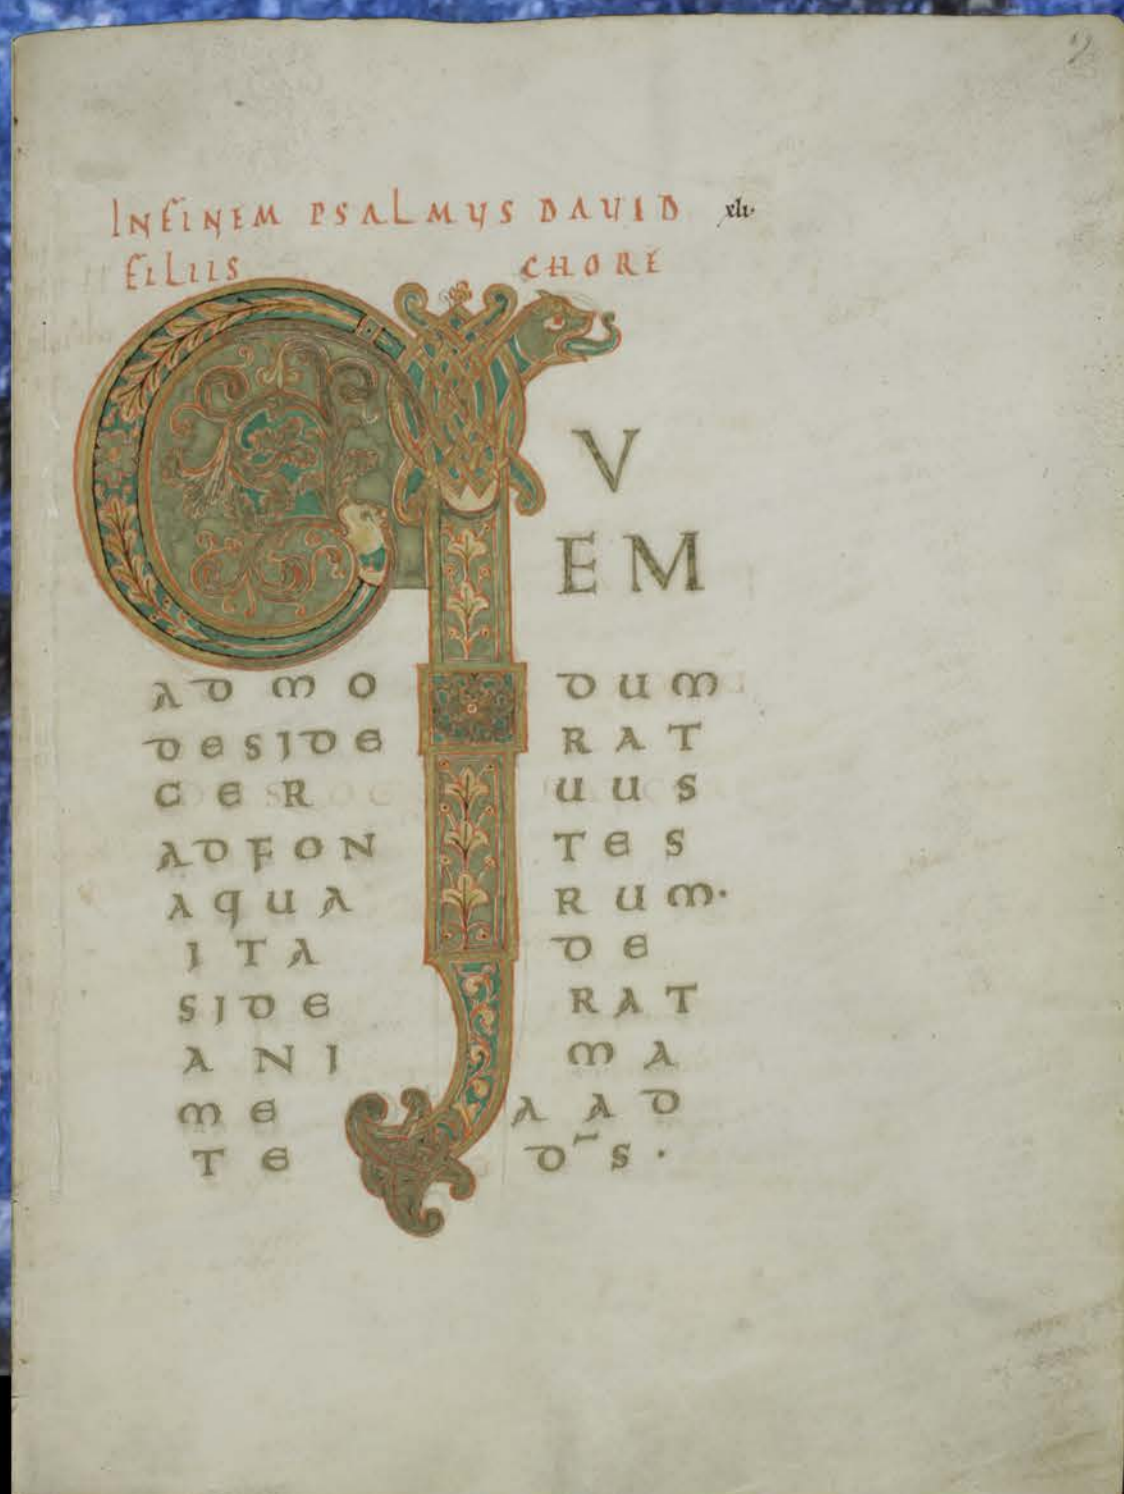 INFINEM PSALMUS DAVID xli
FILIIS CHORE
Q V
EM
ADMO DUM
DESIDE RAT
CER UUS
ADFON TES
AQUA RUM.
ITA DE
SIDE RAT
ANI MA
ME A AD
TE D̄S.